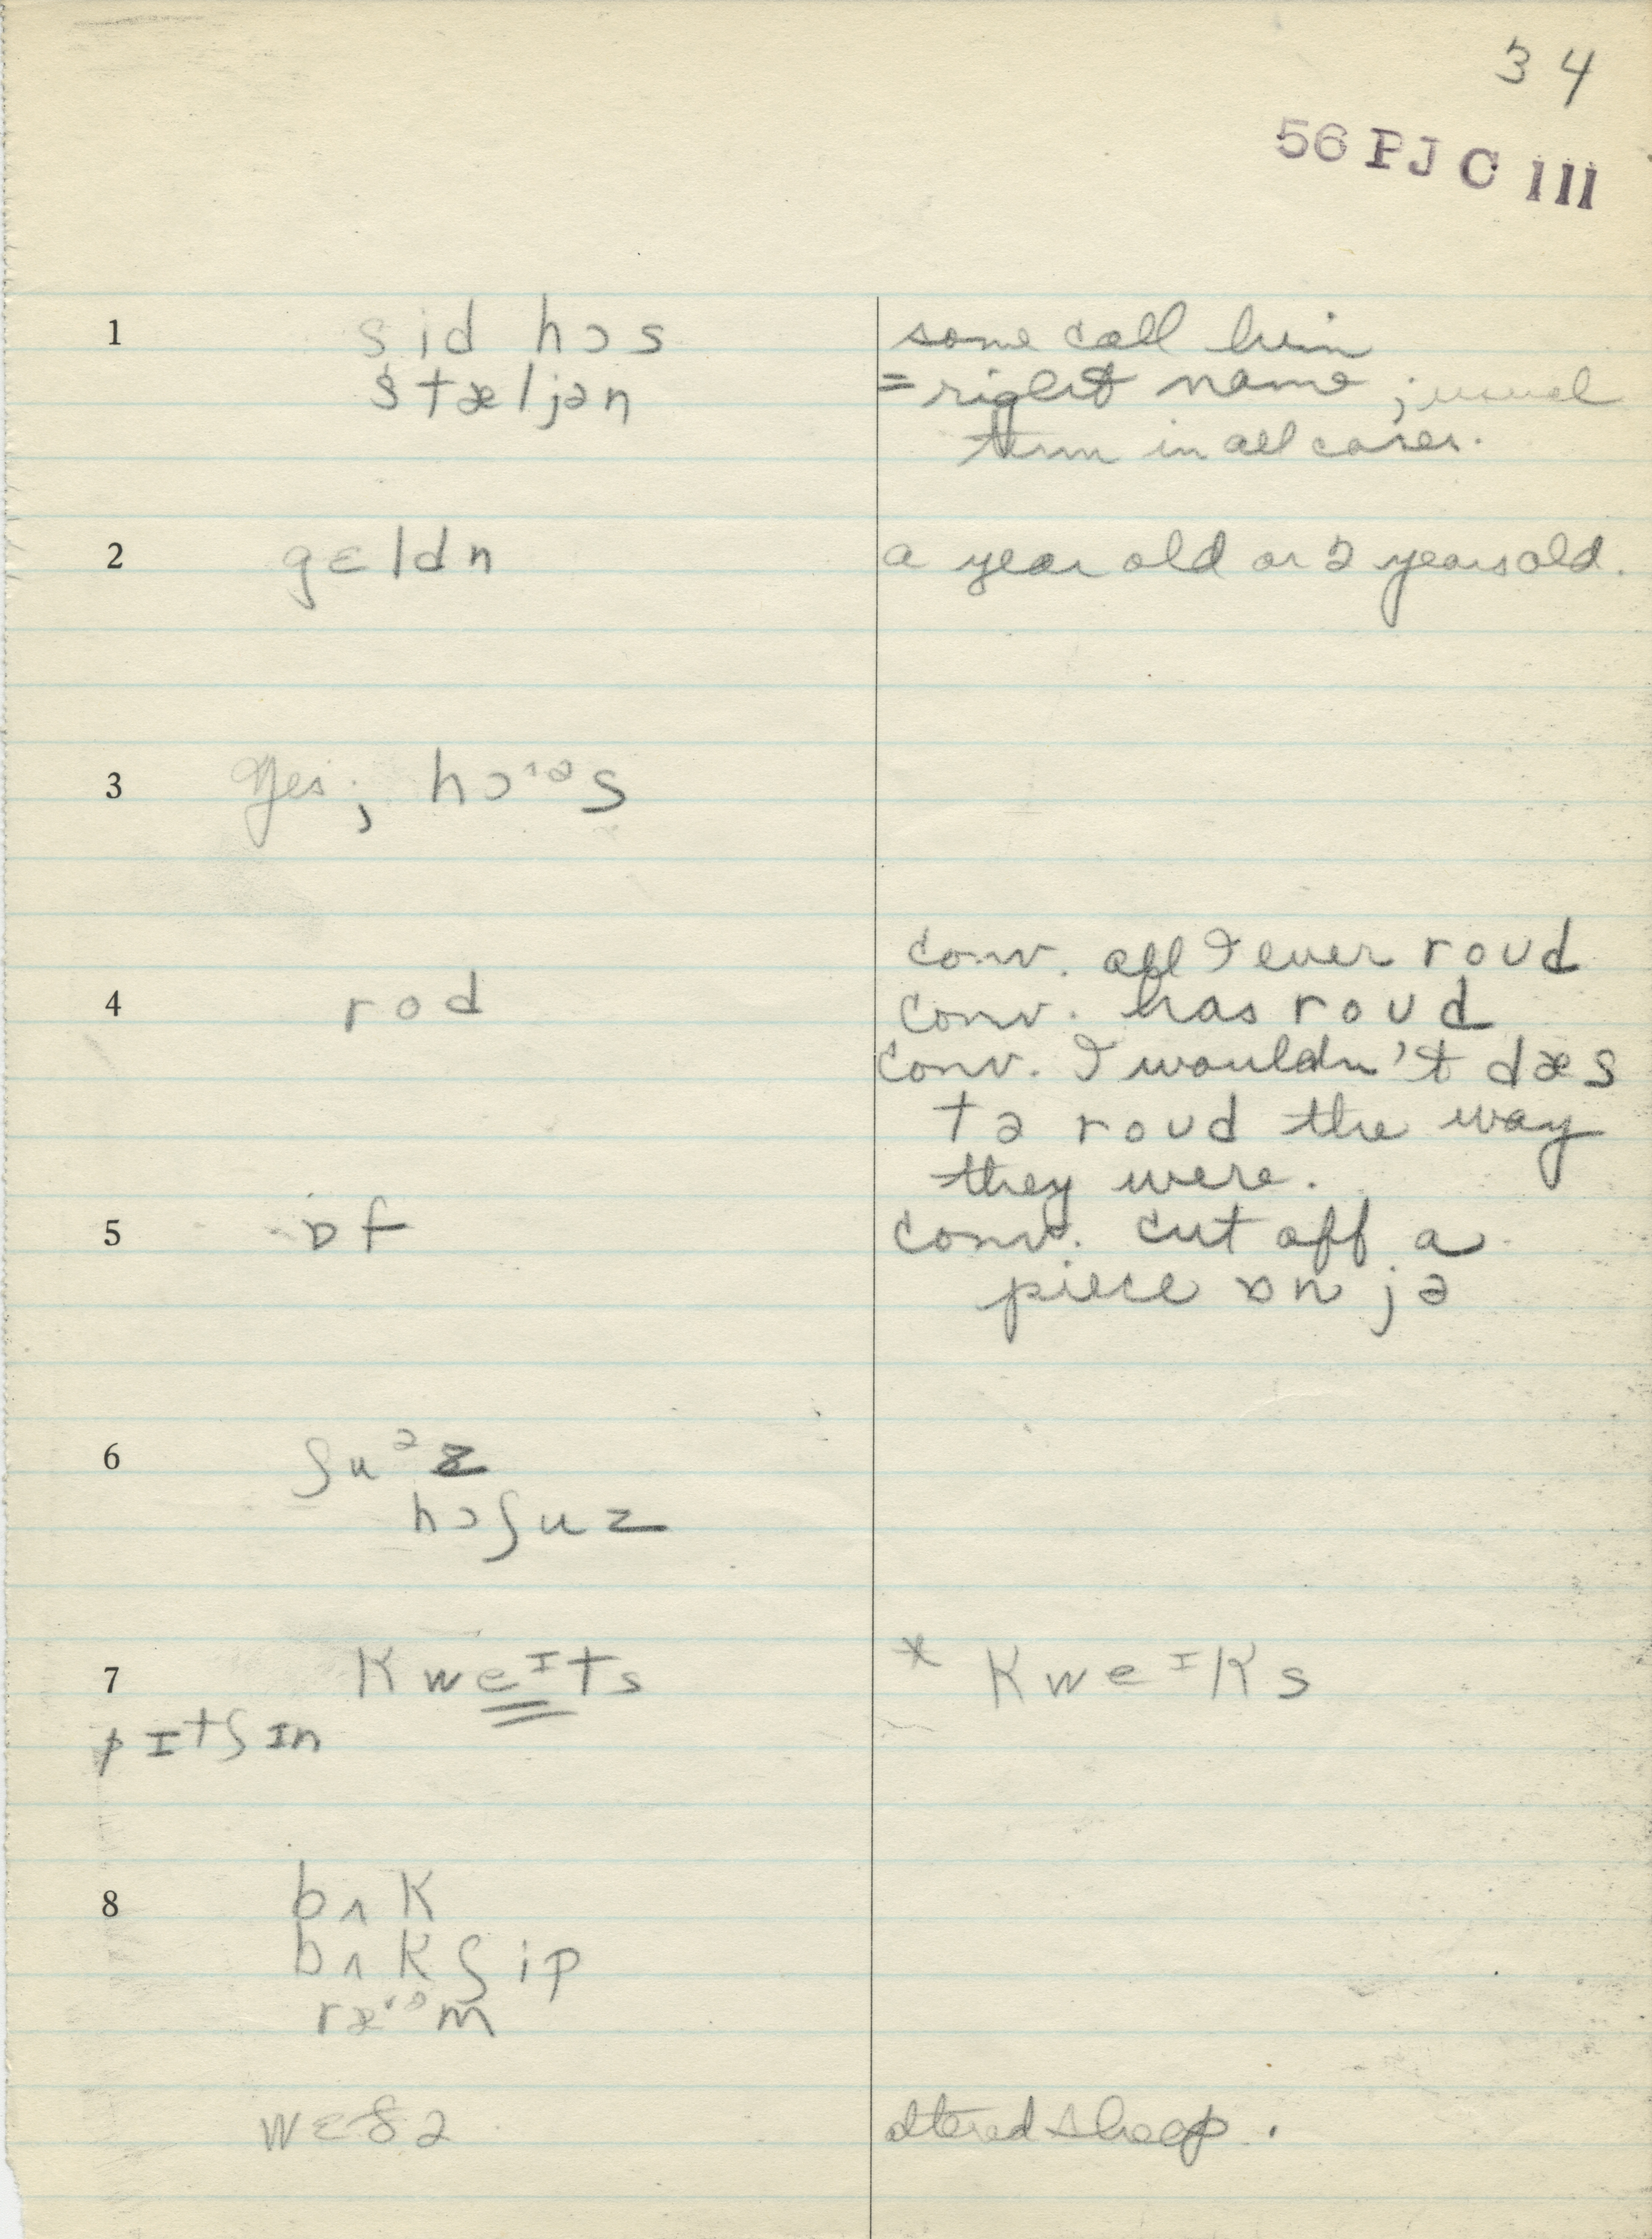 34
56 PJ C III
1 sid hɔs some call him
stæljən = right name ; usual
term in all cases.
2 gɛldn a year old or 2 years old.
3 Yes ; hɔˑᵊs
conv. all I ever roʊd
4 rod conv. has roʊd
conv. I wouldn't dæs
tə roʊd the way
they were.
5 ɒf conv. cut off a
piece ɒn jə
6 ʃuᵊz
hɔʃuz
7 Kweᴵts * KweᴵKs
pɪtʃɪn
8 bʌK
bʌKʃip
ræˑᵊm
wɛðə altered sheep.